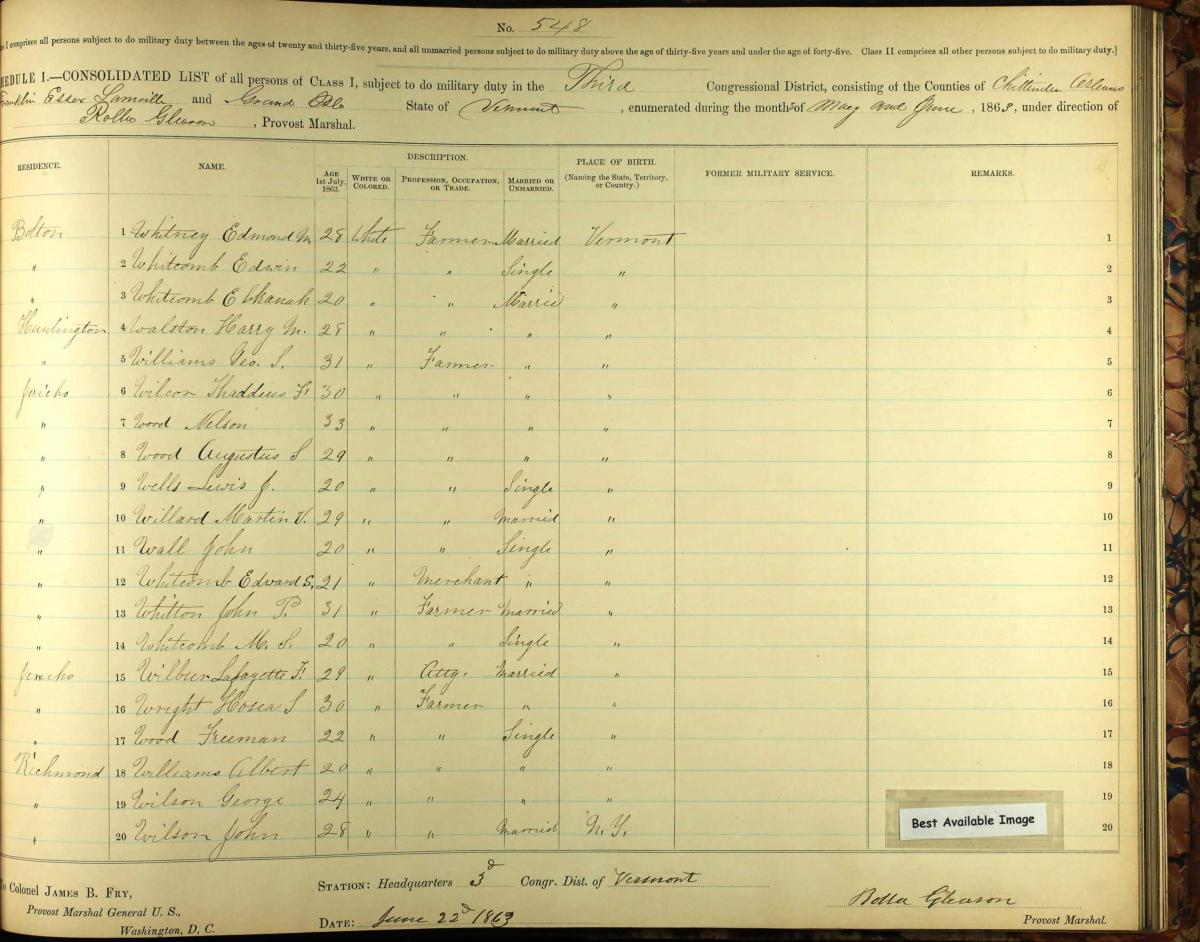 No. 548
I comprises all persons subject to do military duty between the ages of twenty and thirty-five years, and all unmarried persons subject to do military duty above the age of thirty-five years and under the age of forty-five. Class II comprises all other persons subject to do military duty.]
EDULE I.—CONSOLIDATED LIST of all persons of CLASS I, subject to do military duty in the Third Congressional District, consisting of the Counties of Chittenden Orleans
Franklin Essex Lamoille and Grand Isle State of Vermont, enumerated during the months of May and June, 1863, under direction of
Rollin Gleason, Provost Marshal.
RESIDENCE. NAME. DESCRIPTION. PLACE OF BIRTH. FORMER MILITARY SERVICE. REMARKS.
AGE 1st July, 1863. WHITE OR COLORED. PROFESSION, OCCUPATION, OR TRADE. MARRIED OR UNMARRIED. (Naming the State, Territory, or Country.)
Bolton 1 Whitney Edmond M. 28 White Farmer Married Vermont 1
" 2 Whitcomb Edwin 22 " " Single " 2
" 3 Whitcomb Elkanah 20 " " Married " 3
Huntington 4 Walston Harry M. 28 " " " " 4
" 5 Williams Geo. S. 31 " Farmer " " 5
Jericho 6 Wilcox Thaddeus F. 30 " " " " 6
" 7 Wood Nelson 33 " " " " 7
" 8 Wood Augustus S 29 " " " " 8
" 9 Wells Lewis J. 20 " " Single " 9
" 10 Willard Martin V. 29 " " Married " 10
" 11 Wall John 20 " " Single " 11
" 12 Whitcomb Edward S. 21 " Merchant " " 12
" 13 Whitton John P. 31 " Farmer Married " 13
" 14 Whitcomb M. S. 20 " " Single " 14
Jericho 15 Wilbur Lafayette F. 29 " Atty. Married " 15
" 16 Wright Hosea S 30 " Farmer " " 16
" 17 Wood Freeman 22 " " Single " 17
Richmond 18 Williams Albert 20 " " " " 18
" 19 Wilson George 24 " " " " 19
" 20 Wilson John 28 " " Married N.Y. 20
Best Available Image
To Colonel JAMES B. FRY,
Provost Marshal General U. S.,
Washington, D. C.
STATION: Headquarters 3d Congr. Dist. of Vermont
DATE: June 22d 1863
Rolla Gleason
Provost Marshal.